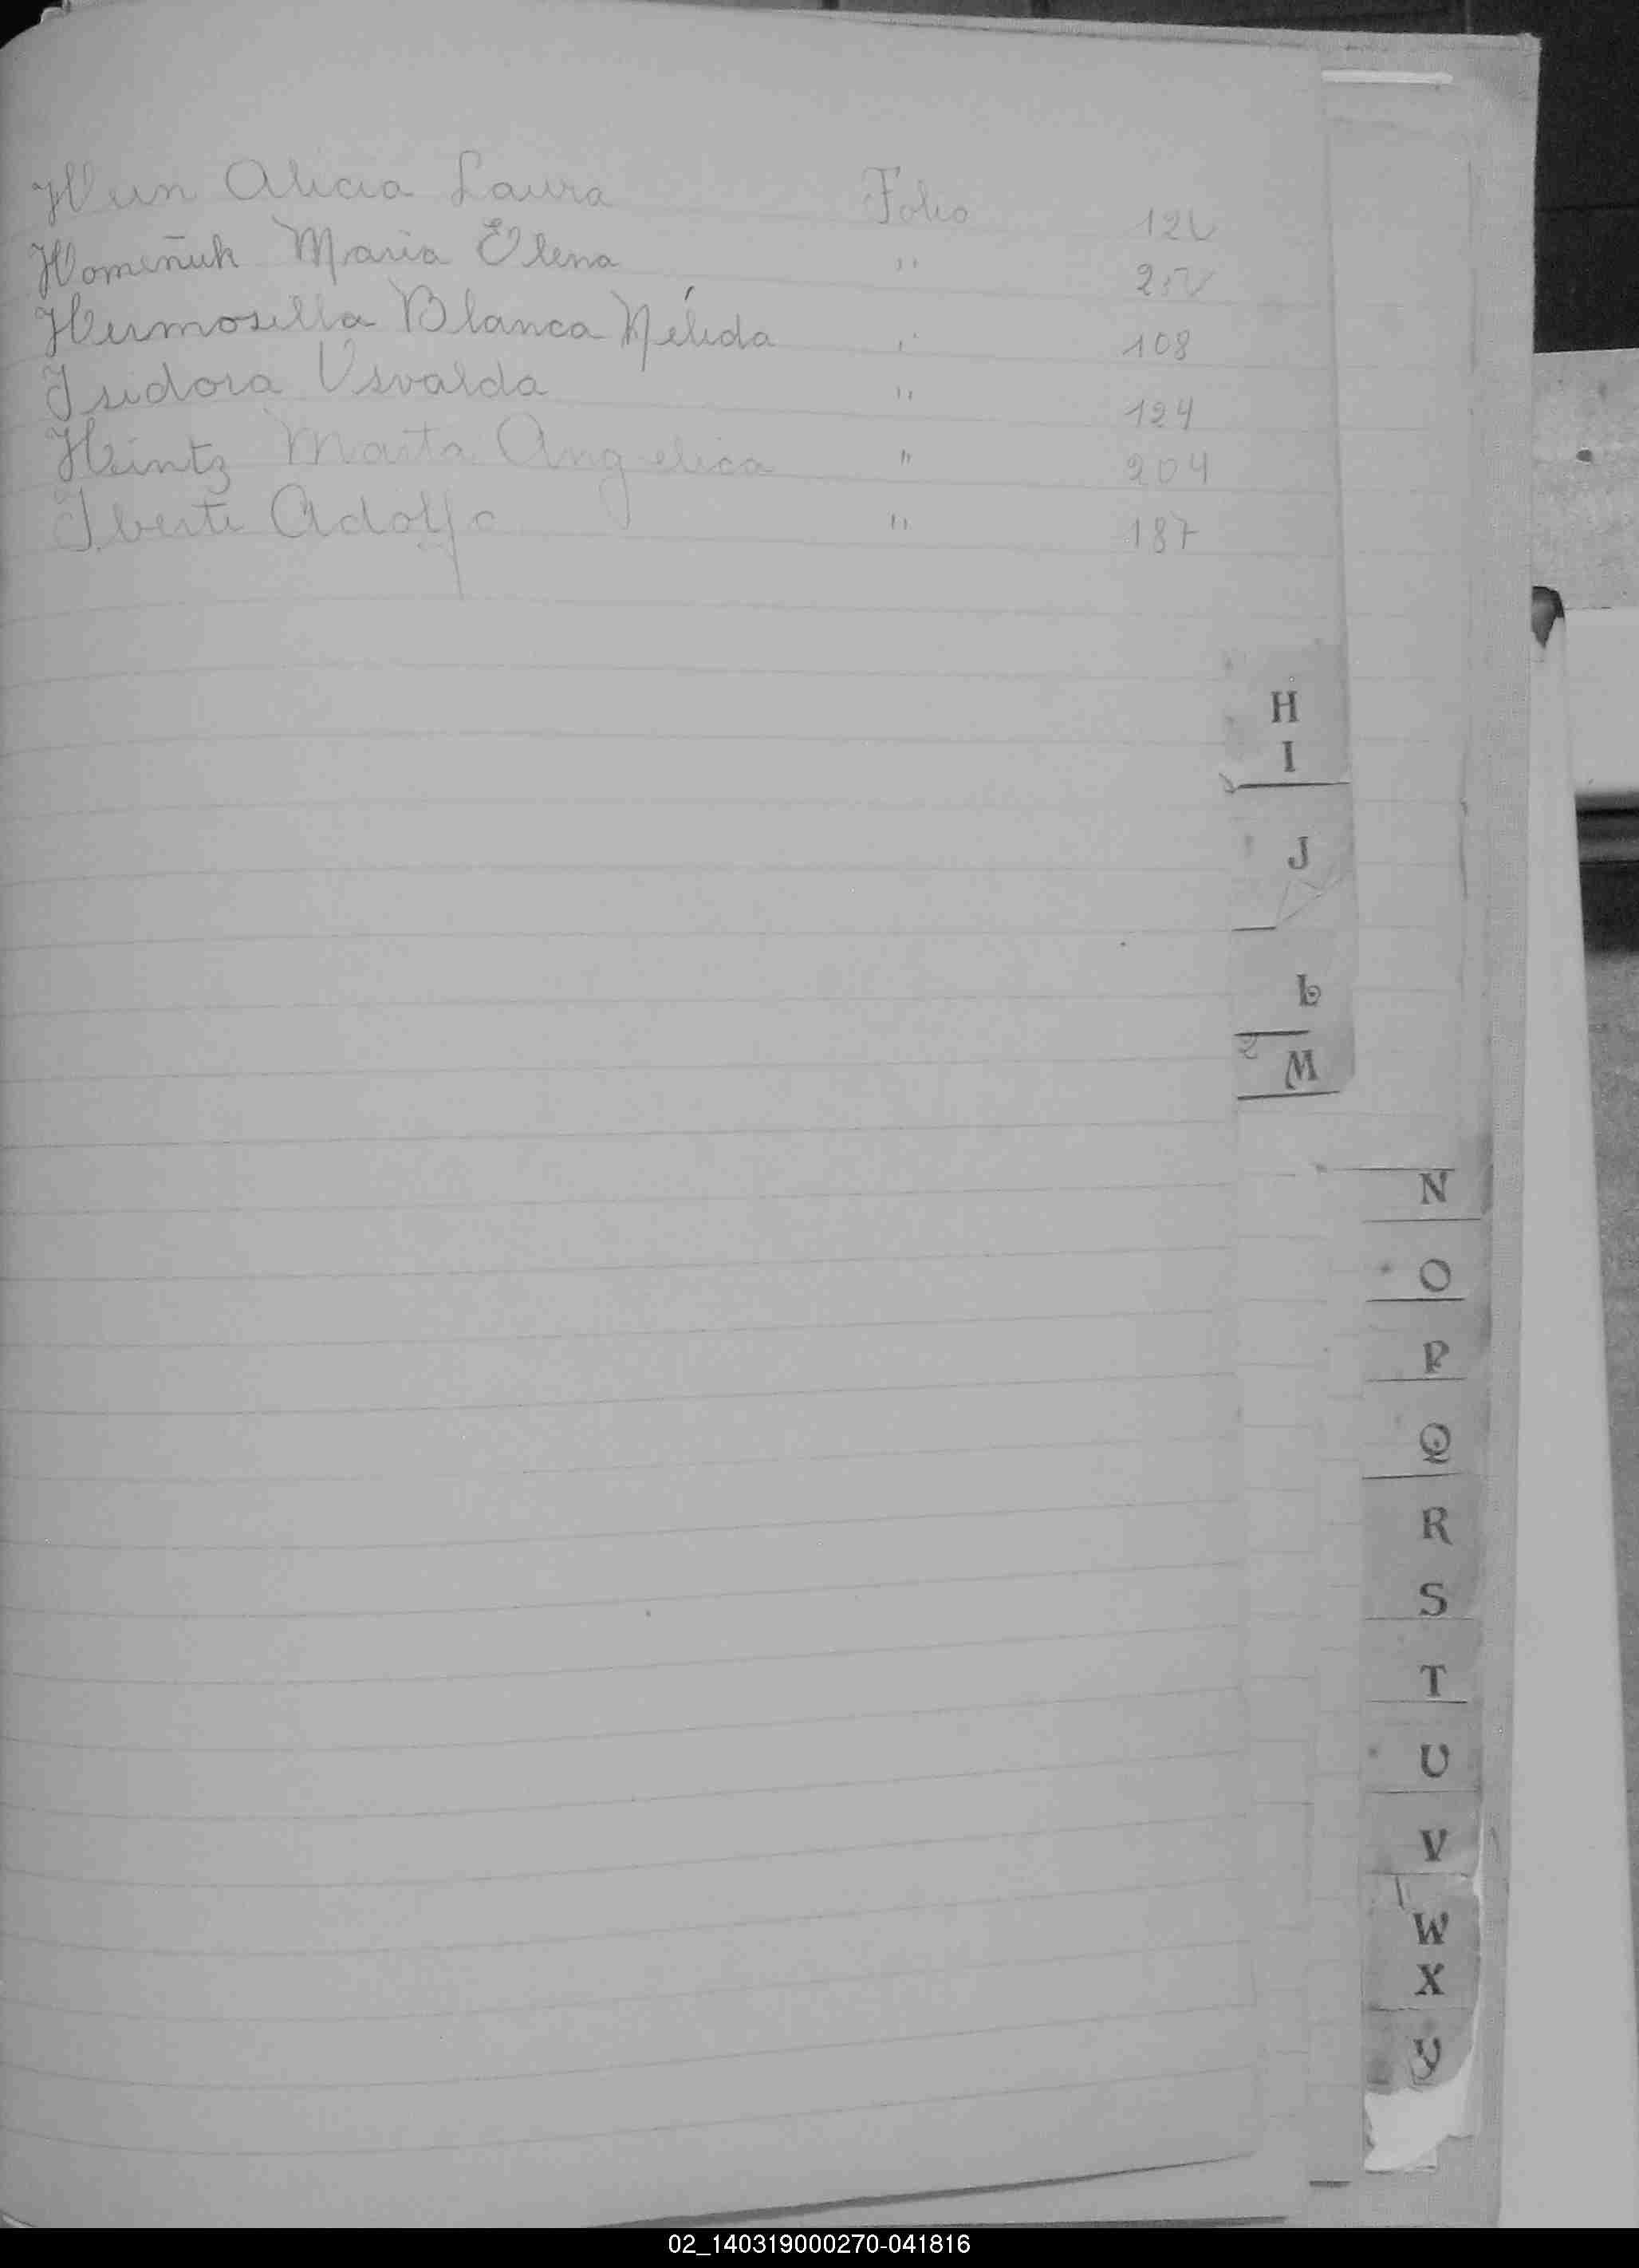 Alicia Laura Folio
Homeñuk Maria Elena "
Hermosilla Blanca Nélida " 108
Isidora Usvalda " 124
Heintz Marta Angelica " 204
Iberti Adolfo " 187
H
I
J
L
M
N
O
P
Q
R
S
T
U
V
W
X
Y
02_140319000270-041816